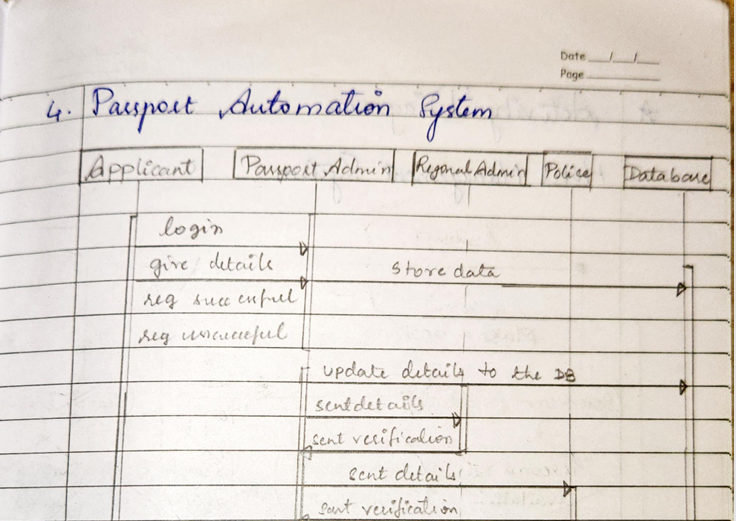 Date __/__/__
Page
4. Passport Automation System
Applicant Passport Admin Regional Admin Police Database
login
give details store data
reg successful
reg unsuccessful
update details to the DB
sent details
sent verification
sent details
sent verification